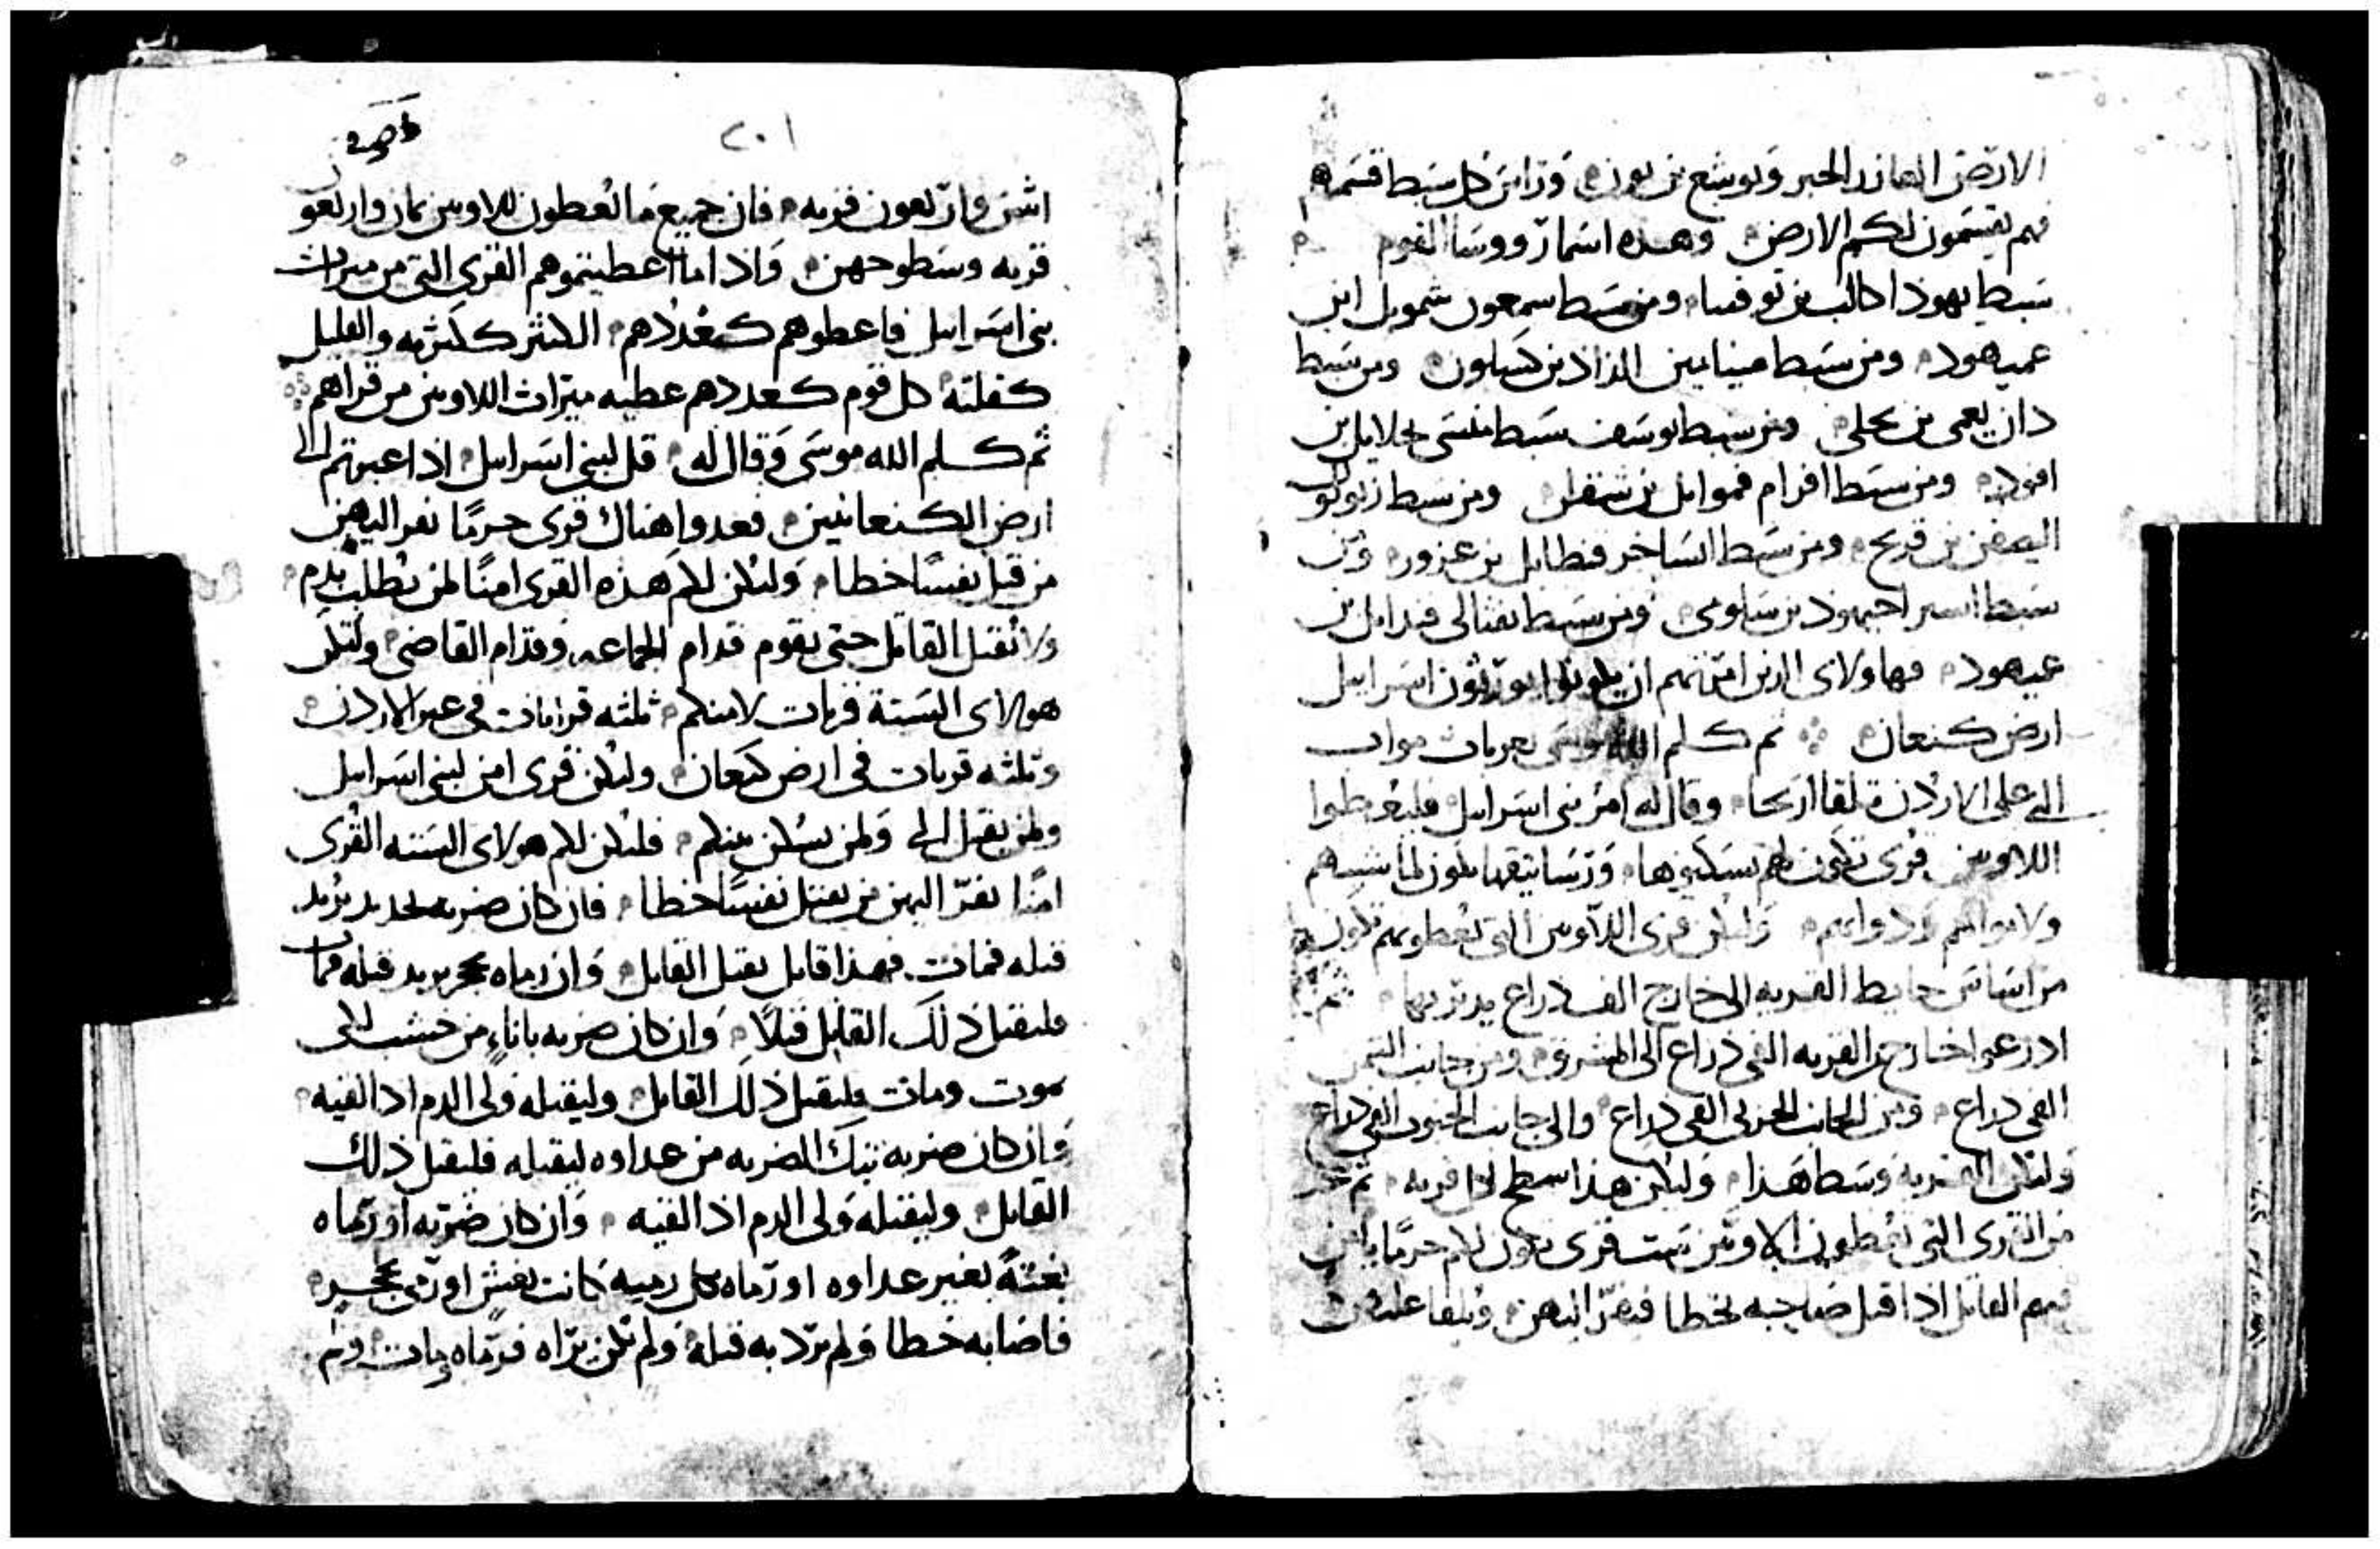 الارض العازر الحبر ويوشع بن نون وراس كل سبط قسمه
فهم يقسمون لكم الارض وهذه اسما رووسا القوم
سبط يهوذا كالب بن يوفنا ومن سبط سمعون شمويل ابن
عميهود ومن سبط مينامين الداذ بن كسلون ومن سبط
دان يعمى بن يحلى ومن سبط يوسف سبط منسى حلايل بن
افود ومن سبط افرام قموايل بن شفطن ومن سبط زبولون
اليصفن بن قريح ومن سبط الساخر فنطايل بن عزور ومن
سبط اسير احيهود بن سلومى ومن سبط نفتالى فدايل بن
عميهود فهاولاى الذين امرتهم ان يورثون اسرايل
ارض كنعان ثم كلم الله موسى بعربات مواب
التى على الاردن تلقا اريحا وقال له امر بنى اسرايل فليعطوا
اللاويين قرى تكون لهم يسكنوها ورساتيقها تكون لماشيتهم
ولاموالهم ودوابهم ولتكن قرى اللاويين التى تعطونهم تكون
من اساس حايط القريه الى خارج الف ذراع يدير بها ثم
اذرعوا خارج من القريه الفى ذراع الى المشرق ومن جانب اليمن
الفى ذراع ومن الجانب الغربى الفى ذراع والى جانب الجنوب الفى ذراع
ولتكن القريه وسط هذا وليكن هذا سطح لذا قريه ثم
من القرى التى تعطون اللاويين ست قرى تكون لكم حرما يامن
فيهم القاتل اذا قتل صاحبه بخطا فيفر اليهن
٢٠١
اثنين واربعون قريه فان جميع ما تعطون للاويين ثمان واربعون
قريه وسطوحهن واذا ما اعطيتموهم القرى التى من ميراث
بنى اسرايل فاعطوهم كعددهم الكثير ككثرته والقليل
كقلته كل قوم كعددهم عطيه ميراث اللاويين من قراهم
ثم كلم الله موسى وقال له قل لبنى اسرايل اذا عبرتم الى
ارض الكنعانيين فعدوا هناك قرى حرمًا يفر اليهن
من قتل نفسًا خطا ولتكن لكم هذه القرى امنًا لمن يطلب بدم
ولا تقتل القاتل حتى يقوم قدام الجماعه وقدام القاضى ولتكن
هولاى الستة قريات لامنكم ثلثه قرايات فى عبر الاردن
وثلثه قريات فى ارض كنعان وليكن قرى امن لبنى اسرايل
ولمن يقبل الى ولمن يسكن بينكم فليكن لكم هولاى السته القرى
امنًا يفر اليهن من يقتل نفسًا خطا فان كان ضربه بحديد يريد
قتله فمات فهذا قاتل يقتل القاتل وان رماه بحجر يريد قتله فمات
فليقتل ذلك القاتل قتلًا وان كان ضربه باناء من خشب لكى
يموت ومات فليقتل ذلك القاتل وليقتله ولى الدم اذا لقيه
وان كان ضربه تيك الضربه من عداوه ليقتله فليقتل ذلك
القاتل وليقتله ولى الدم اذا لقيه وان كان ضربه او رماه
بغتةً بغير عداوه او رماه كل رميه كانت بغش او رمى بحجر
فاصابه خطا ولم يرد به قتله ولم يكن يراه فرماه ومات ولم